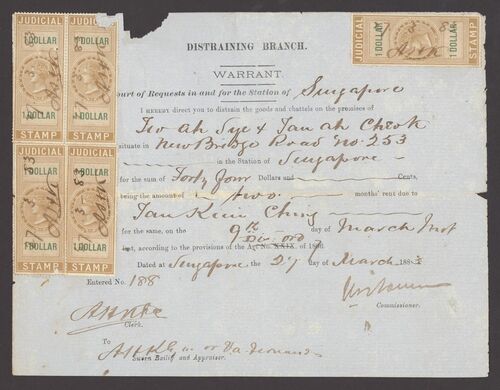 JUDICIAL
1 DOLLAR
1 DOLLAR
STAMP
JUDICIAL
1 DOLLAR
STAMP
JUDICIAL
1 DOLLAR
STAMP
JUDICIAL
1 DOLLAR
STAMP
JUDICIAL
1 DOLLAR
1 DOLLAR
STAMP
DISTRAINING BRANCH.
WARRANT.
ourt of Requests in and for the Station of Singapore
I HEREBY direct you to distrain the goods and chattels on the premises of
Ah Sye & Tan Ah
situate in New Bridge Road No. 253
in the Station of Singapore
for the sum of Forty four Dollars and Cents,
being the amount of two months' rent due to
Tan Kim Ching
for the same, on the 9th day of March Inst
last, according to the provisions of the Act No. XXIX. of
Dated at Singapore the 27 day of March 1883
Entered No. 188
Clerk.
Commissioner.
To
Sworn Bailiff and Appraiser.